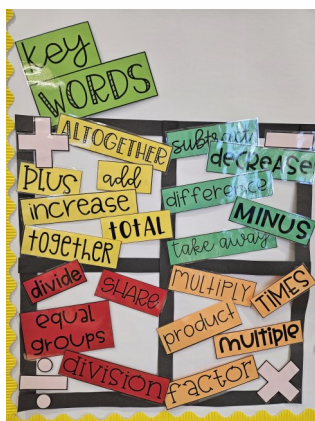 Key
WORDS
ALTOGETHER
PLUS
add
increase
TOTAL
together
subtract
decrease
difference
MINUS
take away
divide
SHARE
equal
groups
division
MULTIPLY
TIMES
product
multiple
factor